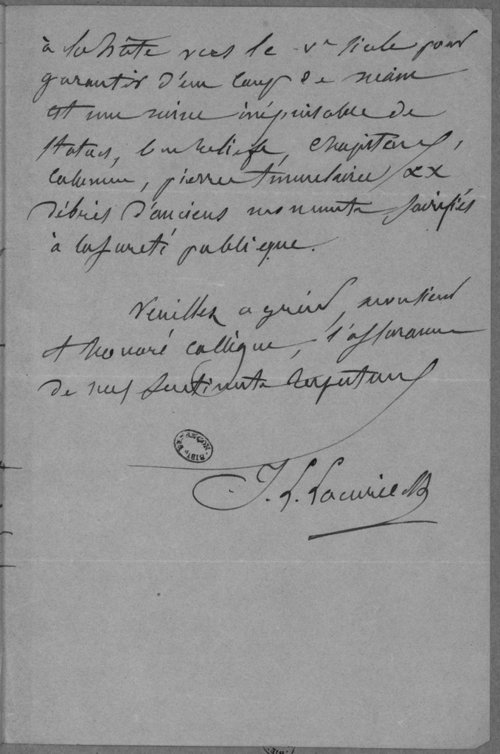 à la hâte vers le Vme siècle pour
garantir d'un coup de main
est une mine inépuisable de
statues, bas reliefs, chapiteaux,
colonnes, pierres tumulaires &&
débris d'anciens monuments sacrifiés
à la sureté publique.
Veuillez agréer, monsieur
et honoré collègue, l'assurance
de mes sentiments respectueux
J. L. Lacurie